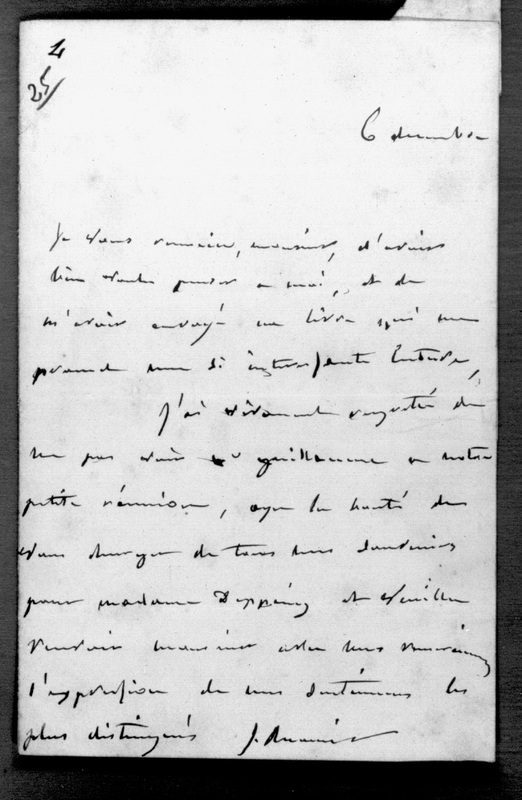 4
25/
6 decembre
Je vous remercie, monsieur, d'avoir
bien voulu penser a moi, et de
m'avoir envoyé un livre qui me
promet une si interessante lecture,
J'ai vivement regretté de
ne pas voir guillaume a notre
petite réunion, ayez la bonté de
vous charger de tous mes souvenirs
pour madame Depping et veuillez
recevoir monsieur avec mes
l'expression de mes sentimens les
plus distingués J.